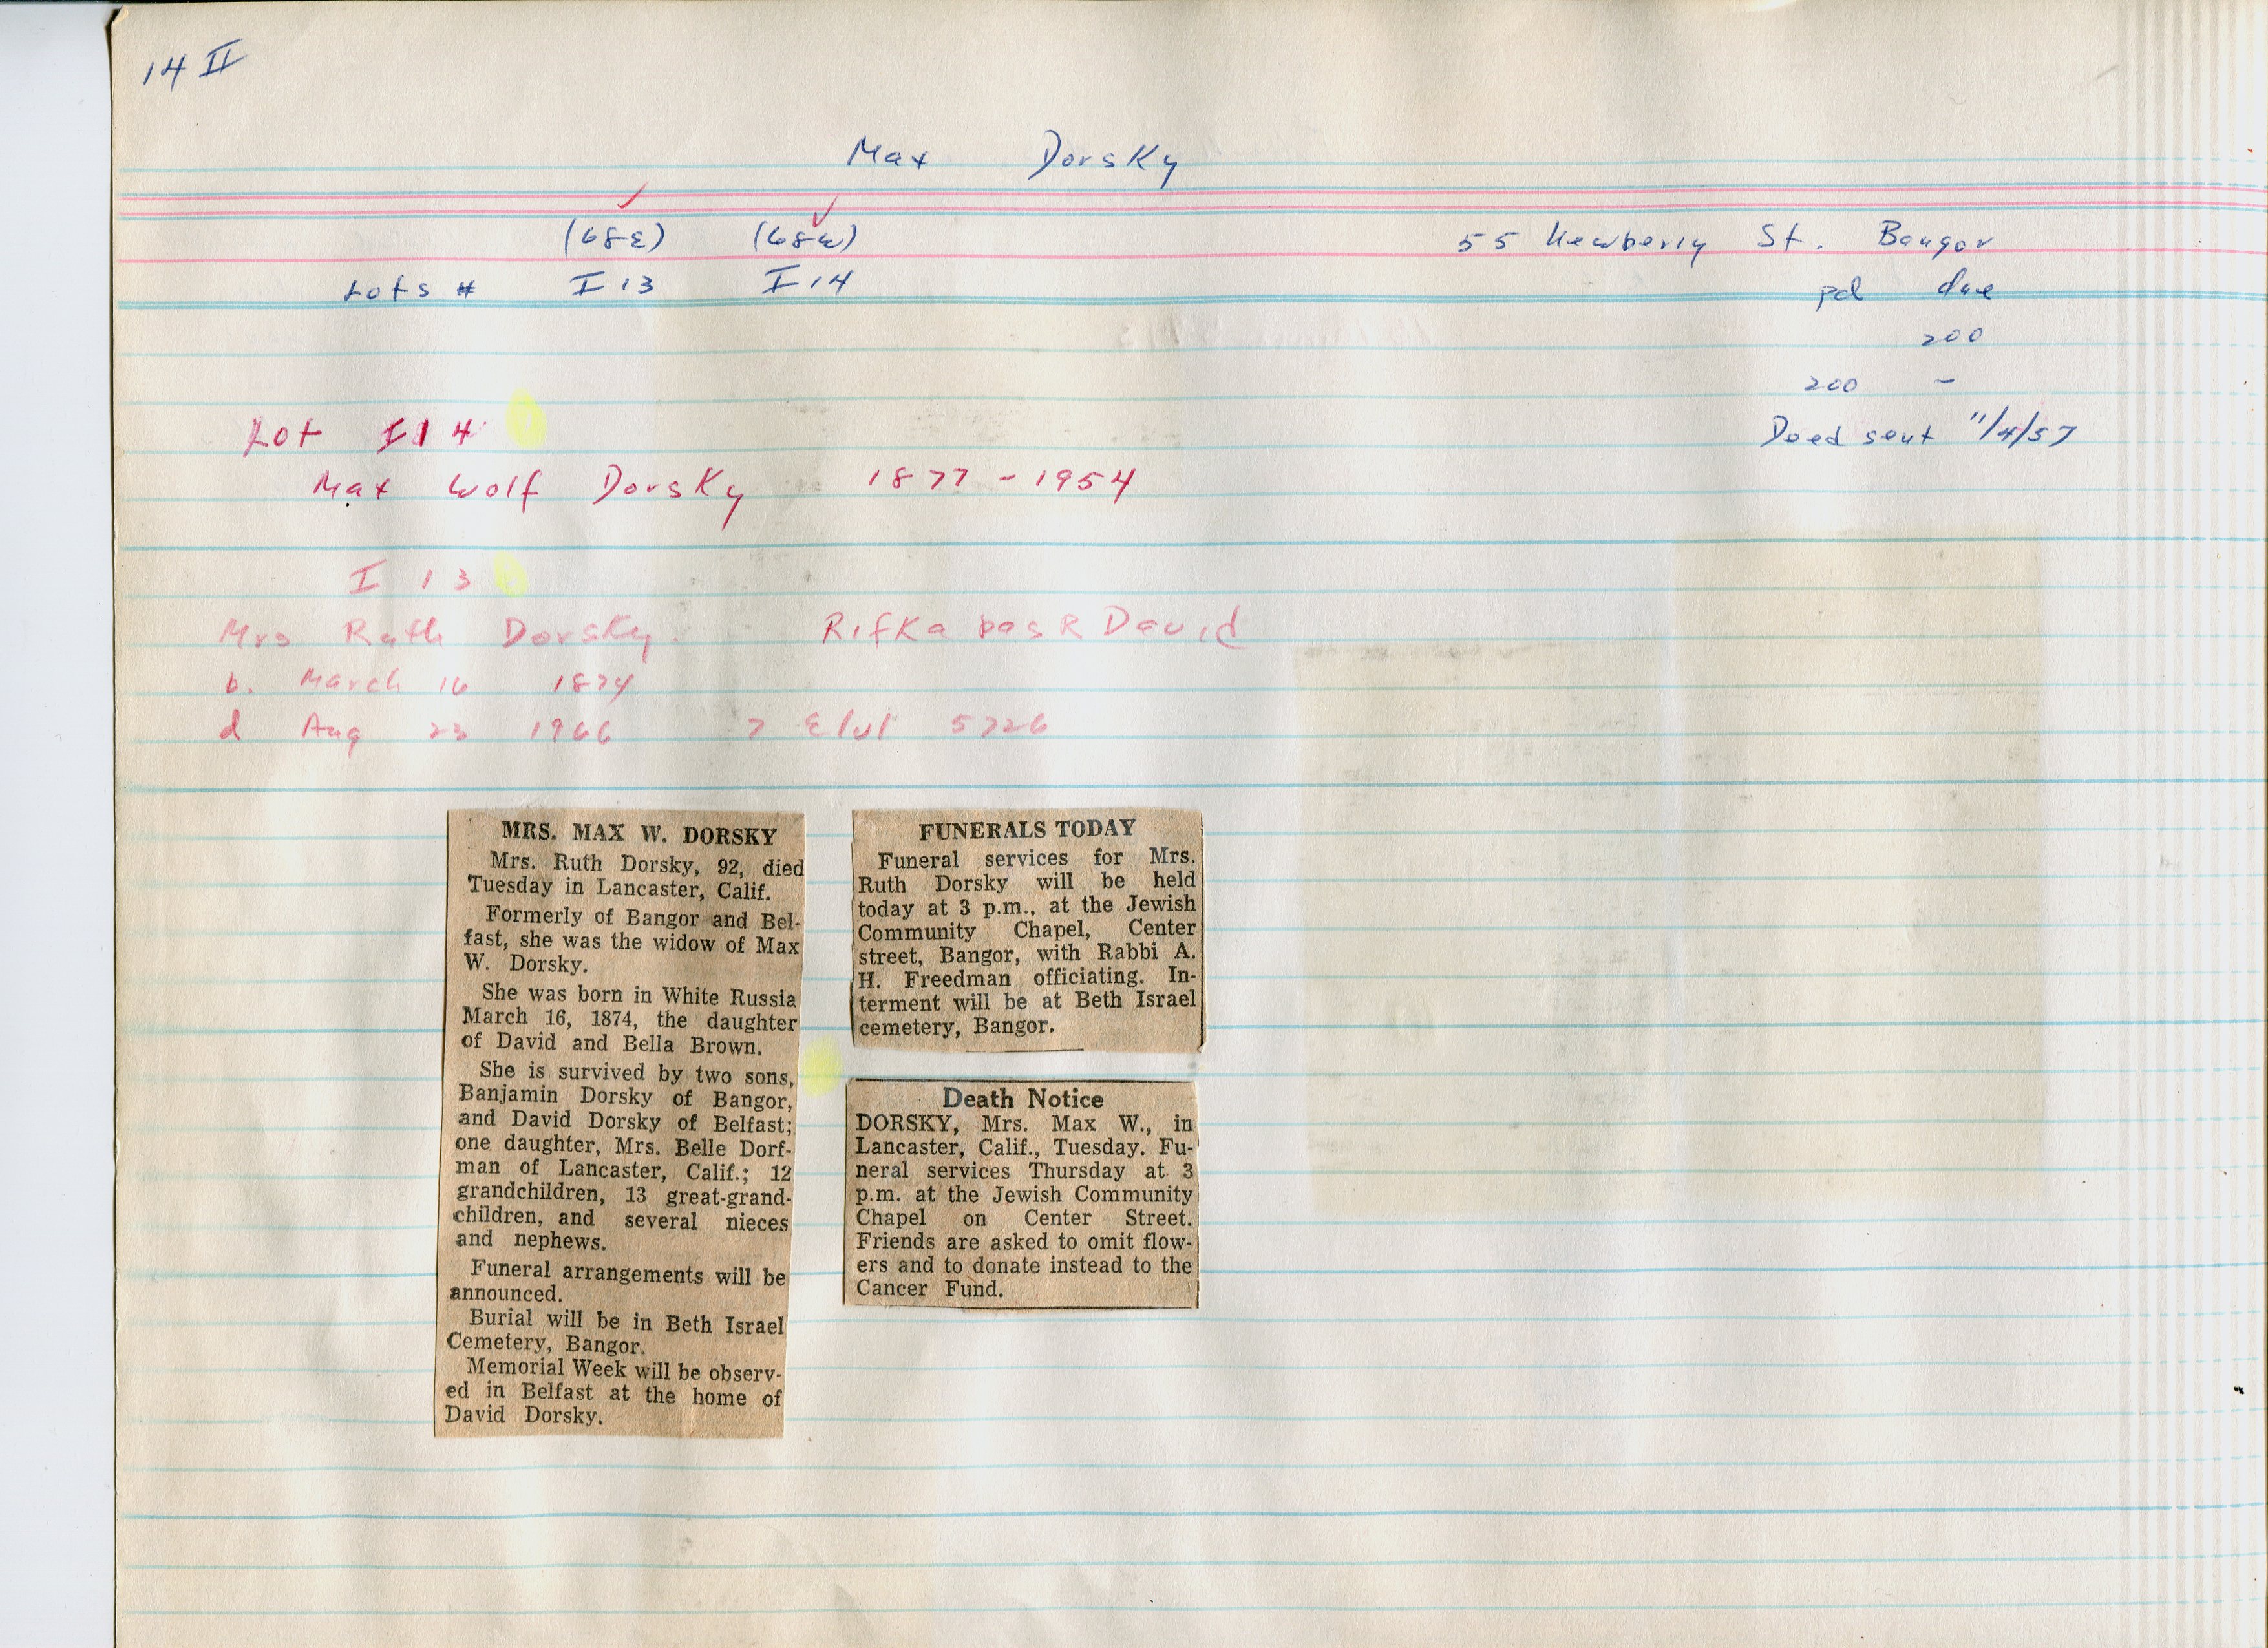 14 II
Max Dorsky
(68E) (68W) 55 Newberry St. Bangor
Lots # I 13 I 14 pd due
200
200 -
Lot I14
Deed sent 11/4/57
Max Wolf Dorsky 1877 - 1954
I 13
Mrs Ruth Dorsky. Rifka bas R David
b. March 16 1874
d Aug 23 1966 7 Elul 5726
MRS. MAX W. DORSKY
Mrs. Ruth Dorsky, 92, died
Tuesday in Lancaster, Calif.
Formerly of Bangor and Bel-
fast, she was the widow of Max
W. Dorsky.
She was born in White Russia
March 16, 1874, the daughter
of David and Bella Brown.
She is survived by two sons,
Banjamin Dorsky of Bangor,
and David Dorsky of Belfast;
one daughter, Mrs. Belle Dorf-
man of Lancaster, Calif.; 12
grandchildren, 13 great-grand-
children, and several nieces
and nephews.
Funeral arrangements will be
announced.
Burial will be in Beth Israel
Cemetery, Bangor.
Memorial Week will be observ-
ed in Belfast at the home of
David Dorsky.
FUNERALS TODAY
Funeral services for Mrs.
Ruth Dorsky will be held
today at 3 p.m., at the Jewish
Community Chapel, Center
street, Bangor, with Rabbi A.
H. Freedman officiating. In-
terment will be at Beth Israel
cemetery, Bangor.
Death Notice
DORSKY, Mrs. Max W., in
Lancaster, Calif., Tuesday. Fu-
neral services Thursday at 3
p.m. at the Jewish Community
Chapel on Center Street.
Friends are asked to omit flow-
ers and to donate instead to the
Cancer Fund.